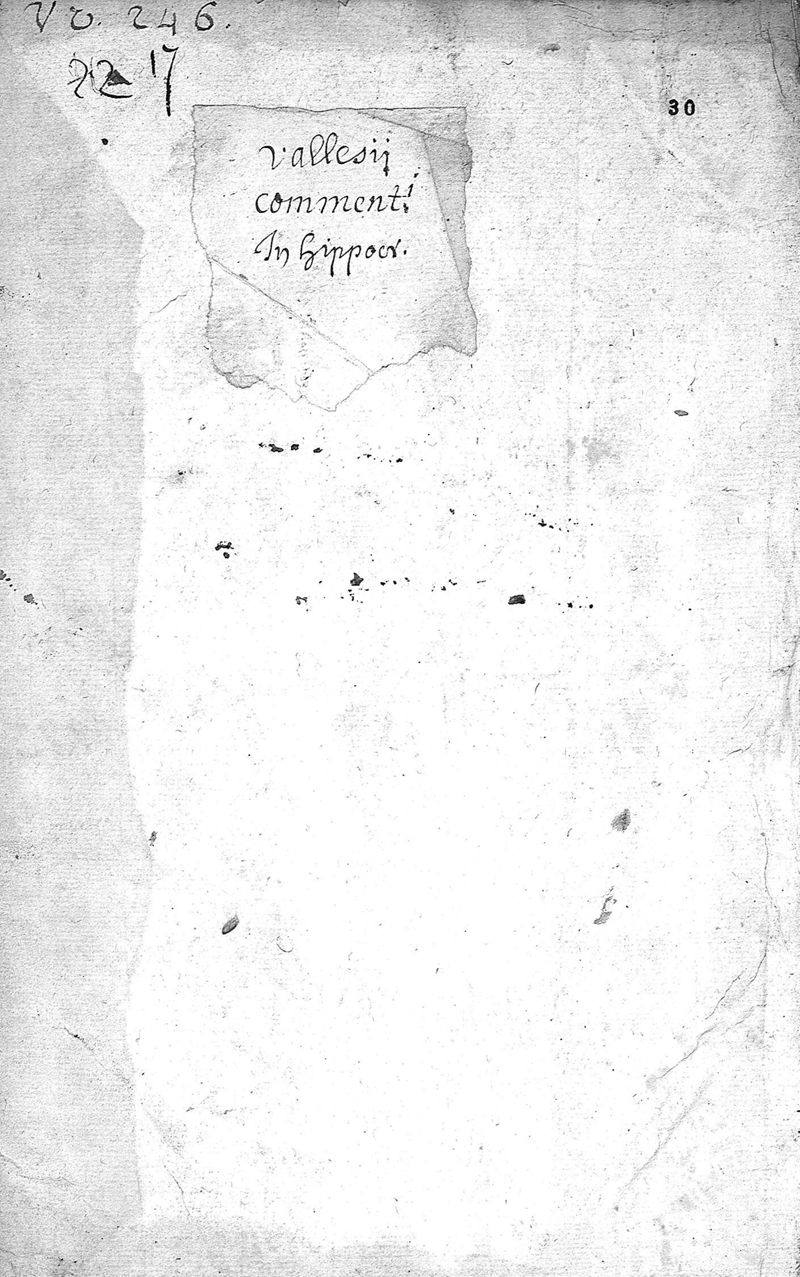 V v. 246.
22 17
30
Vallesij
comment.i
In hippocr.